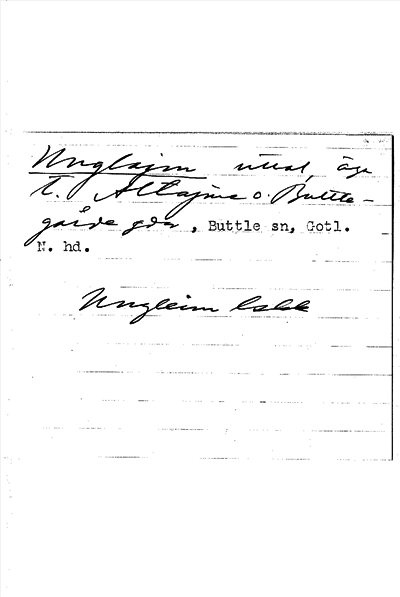 Unglajm uttal, äga
t. Altajme o. Buttle-
gårde gdr, Buttle sn, Gotl.
N. hd.
Ungleim